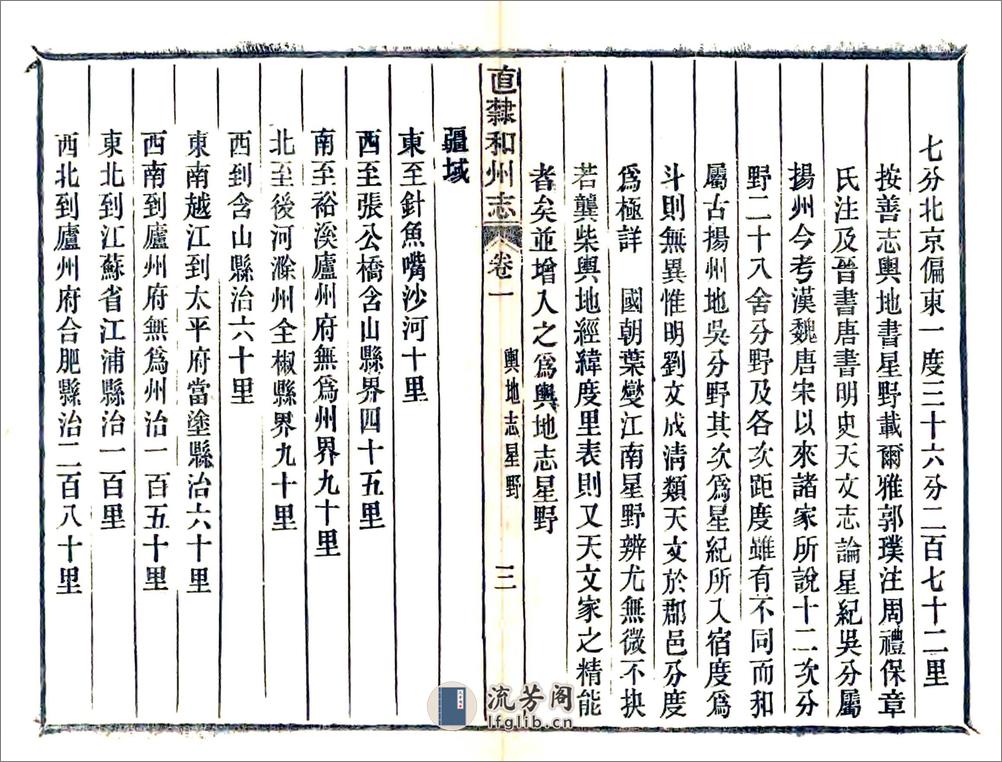 七分北京偏東一度三十六分二百七十二里
按善志輿地書星野載爾雅郭璞注周禮保章
氏注及晉書唐書明史天文志論星紀吳分屬
揚州今考漢魏唐宋以來諸家所說十二次分
野二十八舍分野及各次距度雖有不同而和
屬古揚州地吳分野其次爲星紀所入宿度爲
斗則無異惟明劉文成清類天文於郡邑分度
爲極詳　國朝葉燮江南星野辨尤無微不抉
若龔柴輿地經緯度里表則又天文家之精能
者矣並增入之爲輿地志星野
直隸和州志
卷一
輿地志星野
三
疆域
東至針魚嘴沙河十里
西至張公橋含山縣界四十五里
南至裕溪廬州府無爲州界九十里
北至後河滁州全椒縣界九十里
西到含山縣治六十里
東南越江到太平府當塗縣治六十里
西南到廬州府無爲州治一百五十里
東北到江蘇省江浦縣治一百里
西北到廬州府合肥縣治二百八十里
流芳阁
lfglib.cn